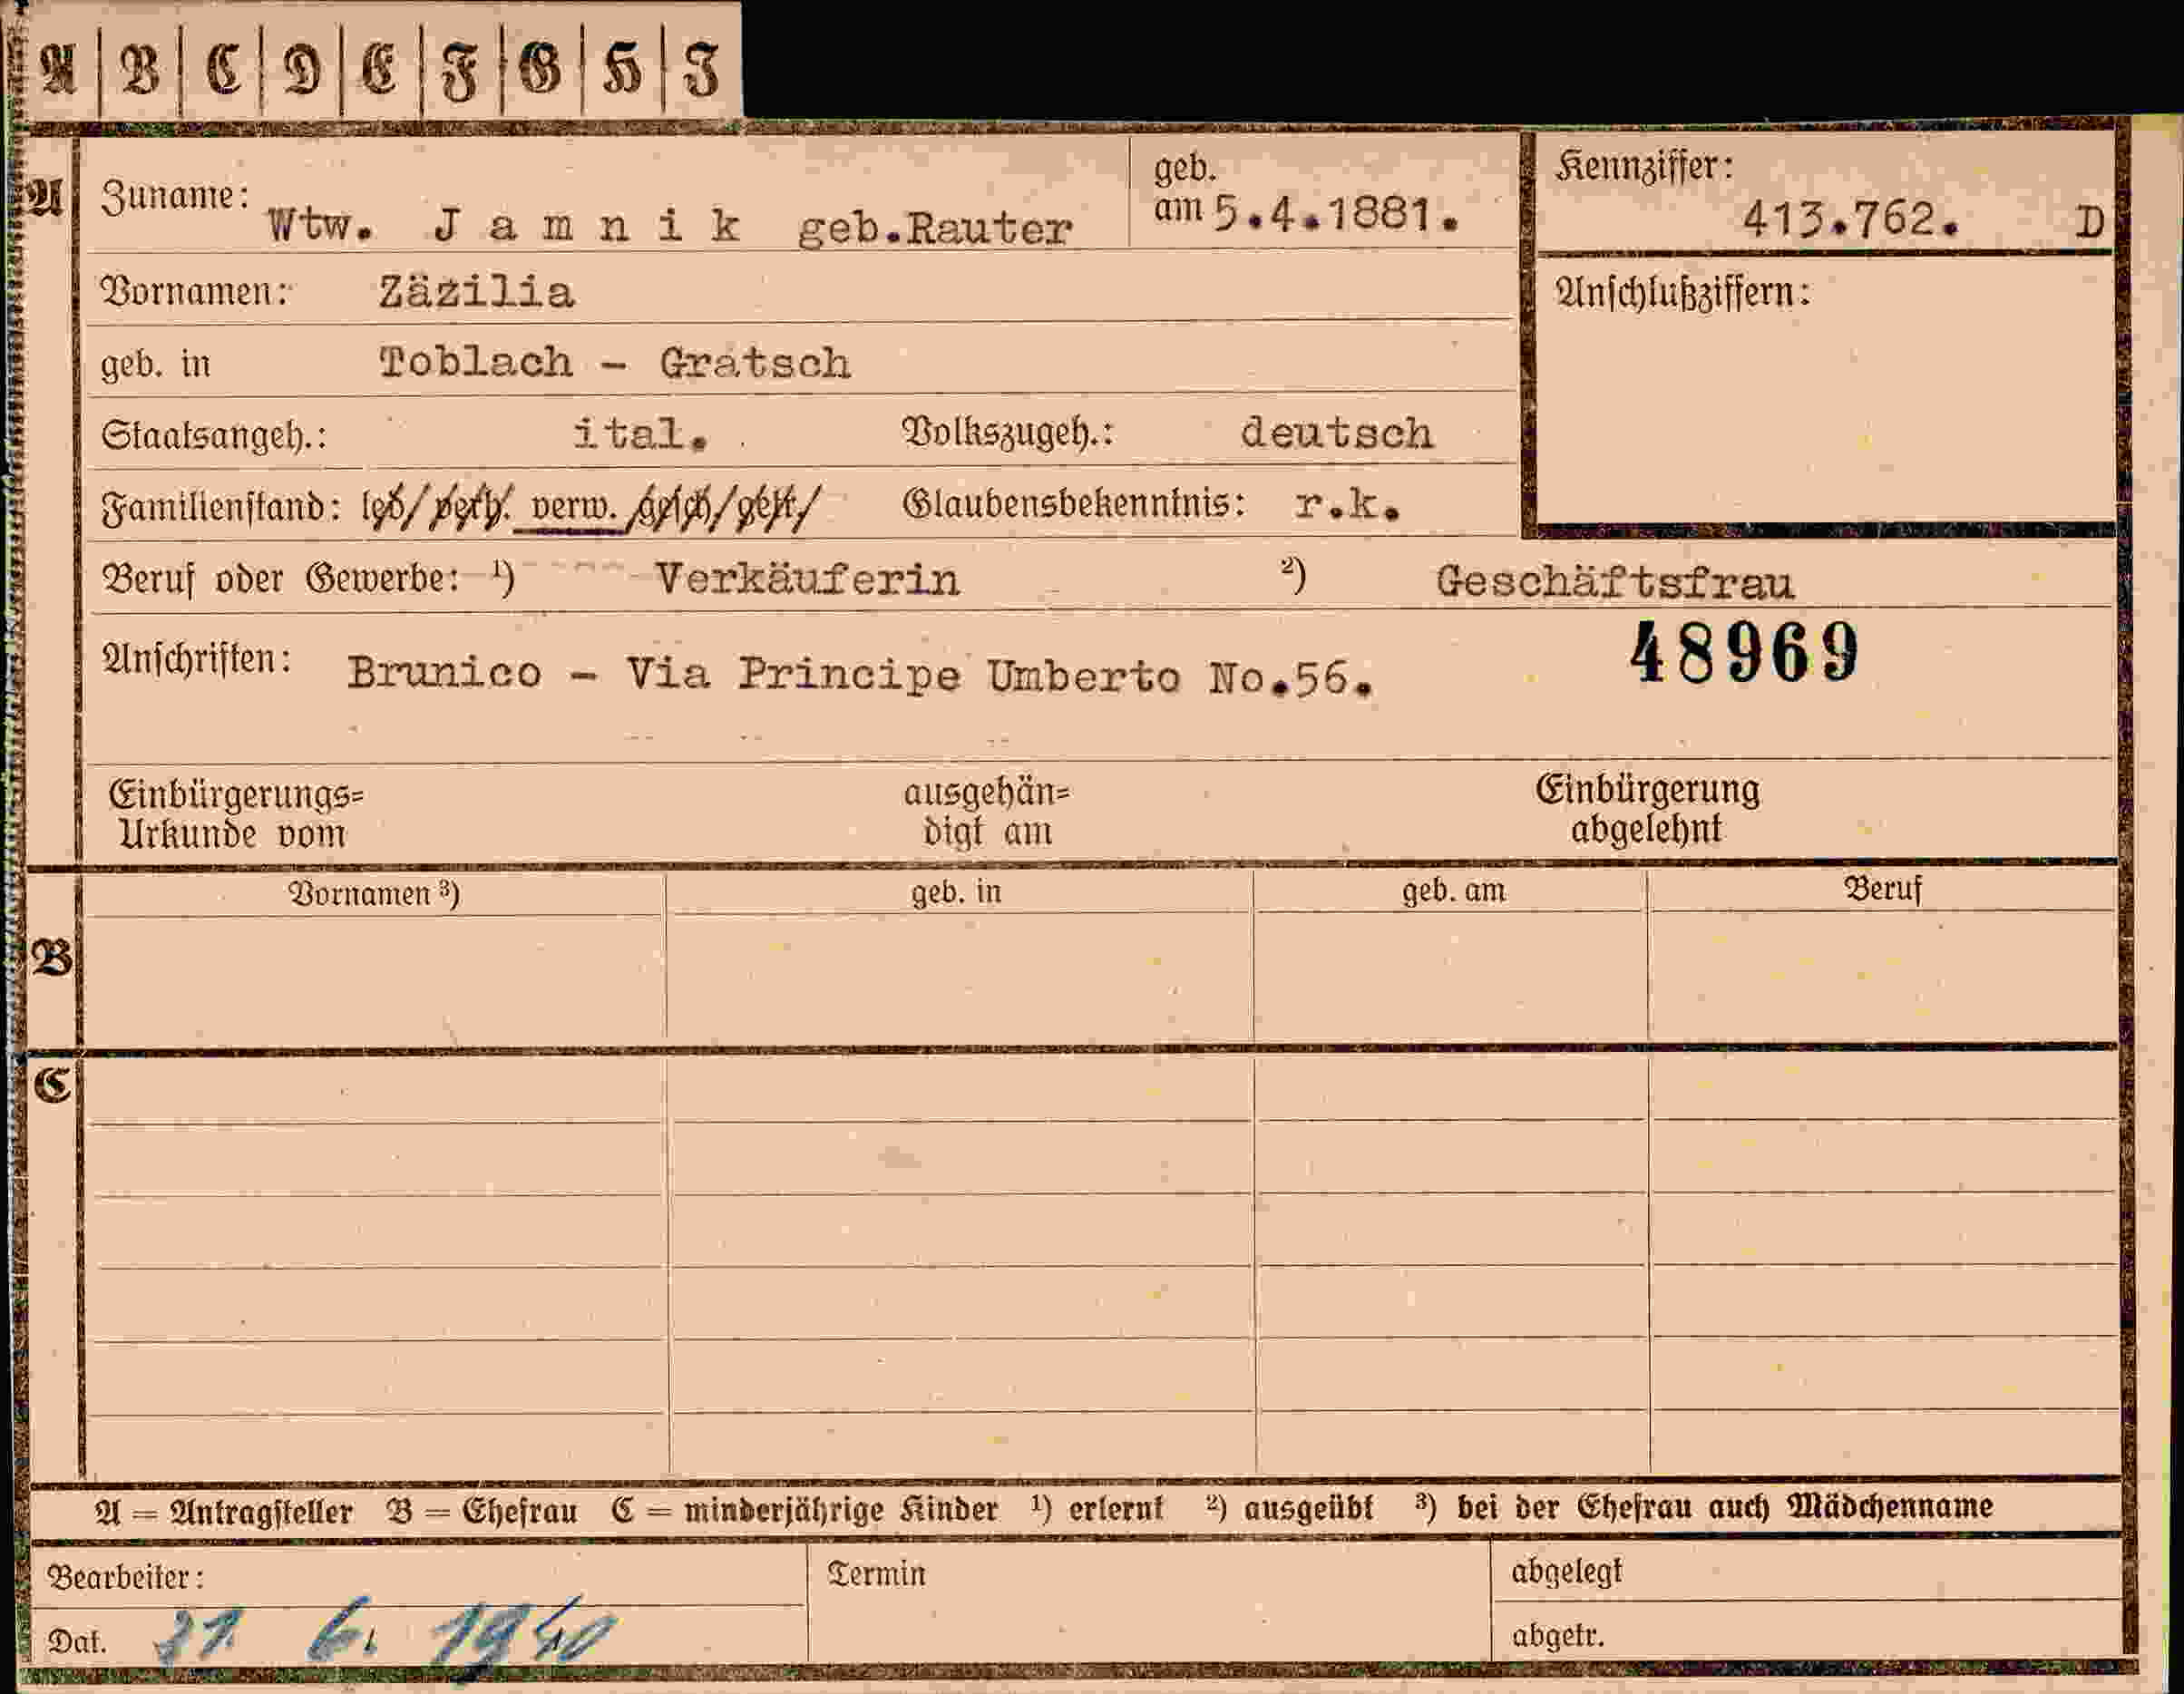 A B C D E F G H I
A Zuname: Wtw. Jamnik geb.Rauter geb. am 5.4.1881. Kennziffer: 413.762. D
Vornamen: Zäzilia Anschlußziffern:
geb. in Toblach - Gratsch
Staatsangeh.: ital. Volkszugeh.: deutsch
Familienstand: led/verh. verw. gesch/getr/ Glaubensbekenntnis: r.k.
Beruf oder Gewerbe: ¹) Verkäuferin ²) Geschäftsfrau
Anschriften: Brunico - Via Principe Umberto No.56. 48969
Einbürgerungs= ausgehän= Einbürgerung
Urkunde vom digt am abgelehnt
Vornamen ³) geb. in geb. am Beruf
B
C
A = Antragsteller B = Ehefrau C = minderjährige Kinder ¹) erlernt ²) ausgeübt ³) bei der Ehefrau auch Mädchenname
Bearbeiter: Termin abgelegt
Dat. 21 6. 1940 abgetr.